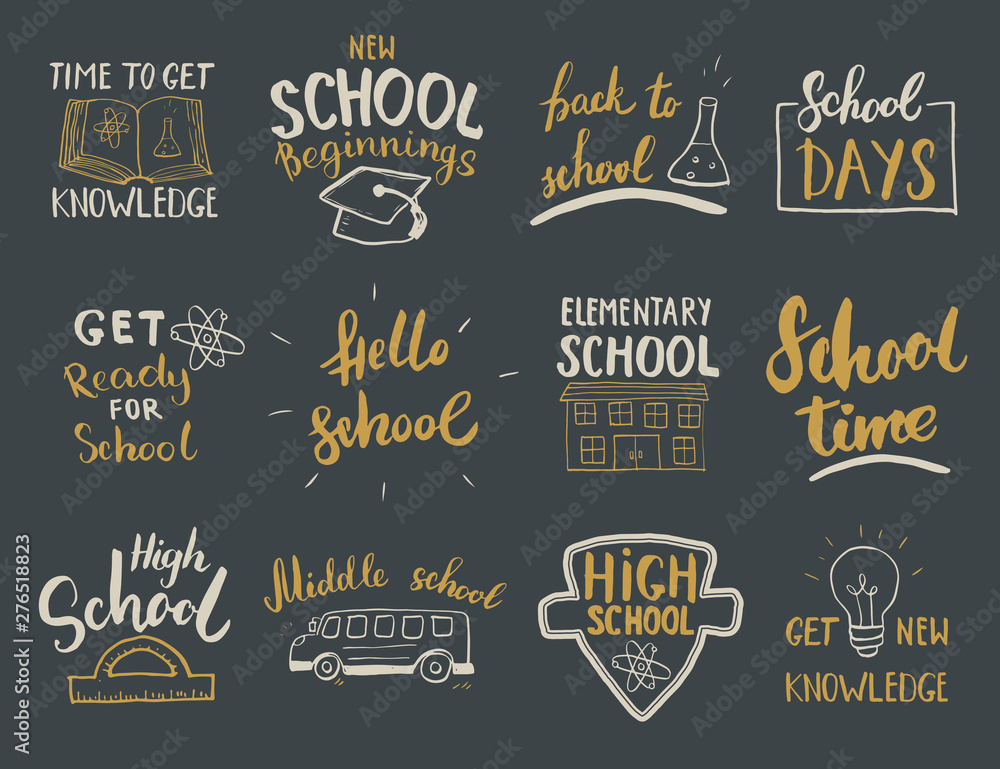 TIME TO GET
KNOWLEDGE
NEW
SCHOOL
Beginnings
back to
school
School
DAYS
GET
Ready
FOR
School
Hello
school
ELEMENTARY
SCHOOL
School
time
High
School
Middle school
HiGH
SCHOOL
GET NEW
KNOWLEDGE
Adobe Stock | #276518823